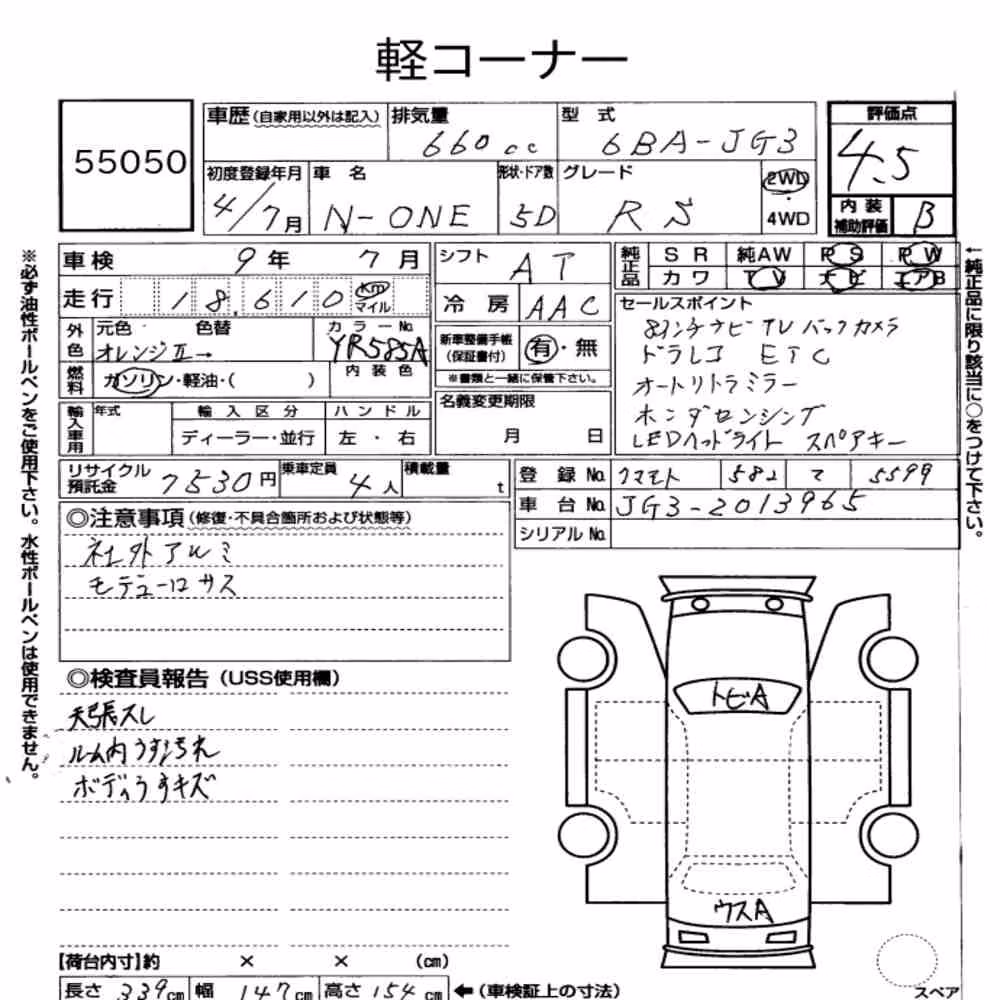 軽コーナー
55050
車歴(自家用以外は記入)
排気量
660cc
型 式
6BA-JG3
評価点
4.5
初度登録年月
4/7月
車 名
N-ONE
形状・ドア数
5D
グレード
RS
2WD
・
4WD
内 装
補助評価
B
※必ず油性ボールペンをご使用下さい。水性ボールペンは使用できません。
車検
9年 7月
シフト
AT
純正品
SR 純AW PS PW
カワ TV ナビ エアB
↑純正品に限り該当に○をつけて下さい。
走行
18,610
Km
マイル
冷 房
AAC
セールスポイント
8インチナビTVバックカメラ
ドラレコ ETC
オートリトラミラー
ホンダセンシング
LEDヘッドライト スペアキー
外色
元色 色替
オレンジⅡ→
カラーNo.
YR585A
内装色
新車整備手帳
(保証書付)
有・無
※書類と一緒に保管下さい。
燃料
ガソリン・軽油・( )
輸入車用
年式
輸入区分
ディーラー・並行
ハンドル
左・右
名義変更期限
月 日
リサイクル
預託金
7530円
乗車定員
4人
積載量
t
登 録 No.
クマモト 582 マ 5599
車 台 No.
JG3-2013965
シリアル No.
◎注意事項(修復・不具合箇所および状態等)
社外アルミ
モデューロサス
◎検査員報告(USS使用欄)
天張スレ
ルーム内うすく汚れ
ボディうすキズ
トビA
ウスA
【荷台内寸】約 × × (cm)
長さ 339cm 幅 147cm 高さ 154cm ←(車検証上の寸法)
スペア